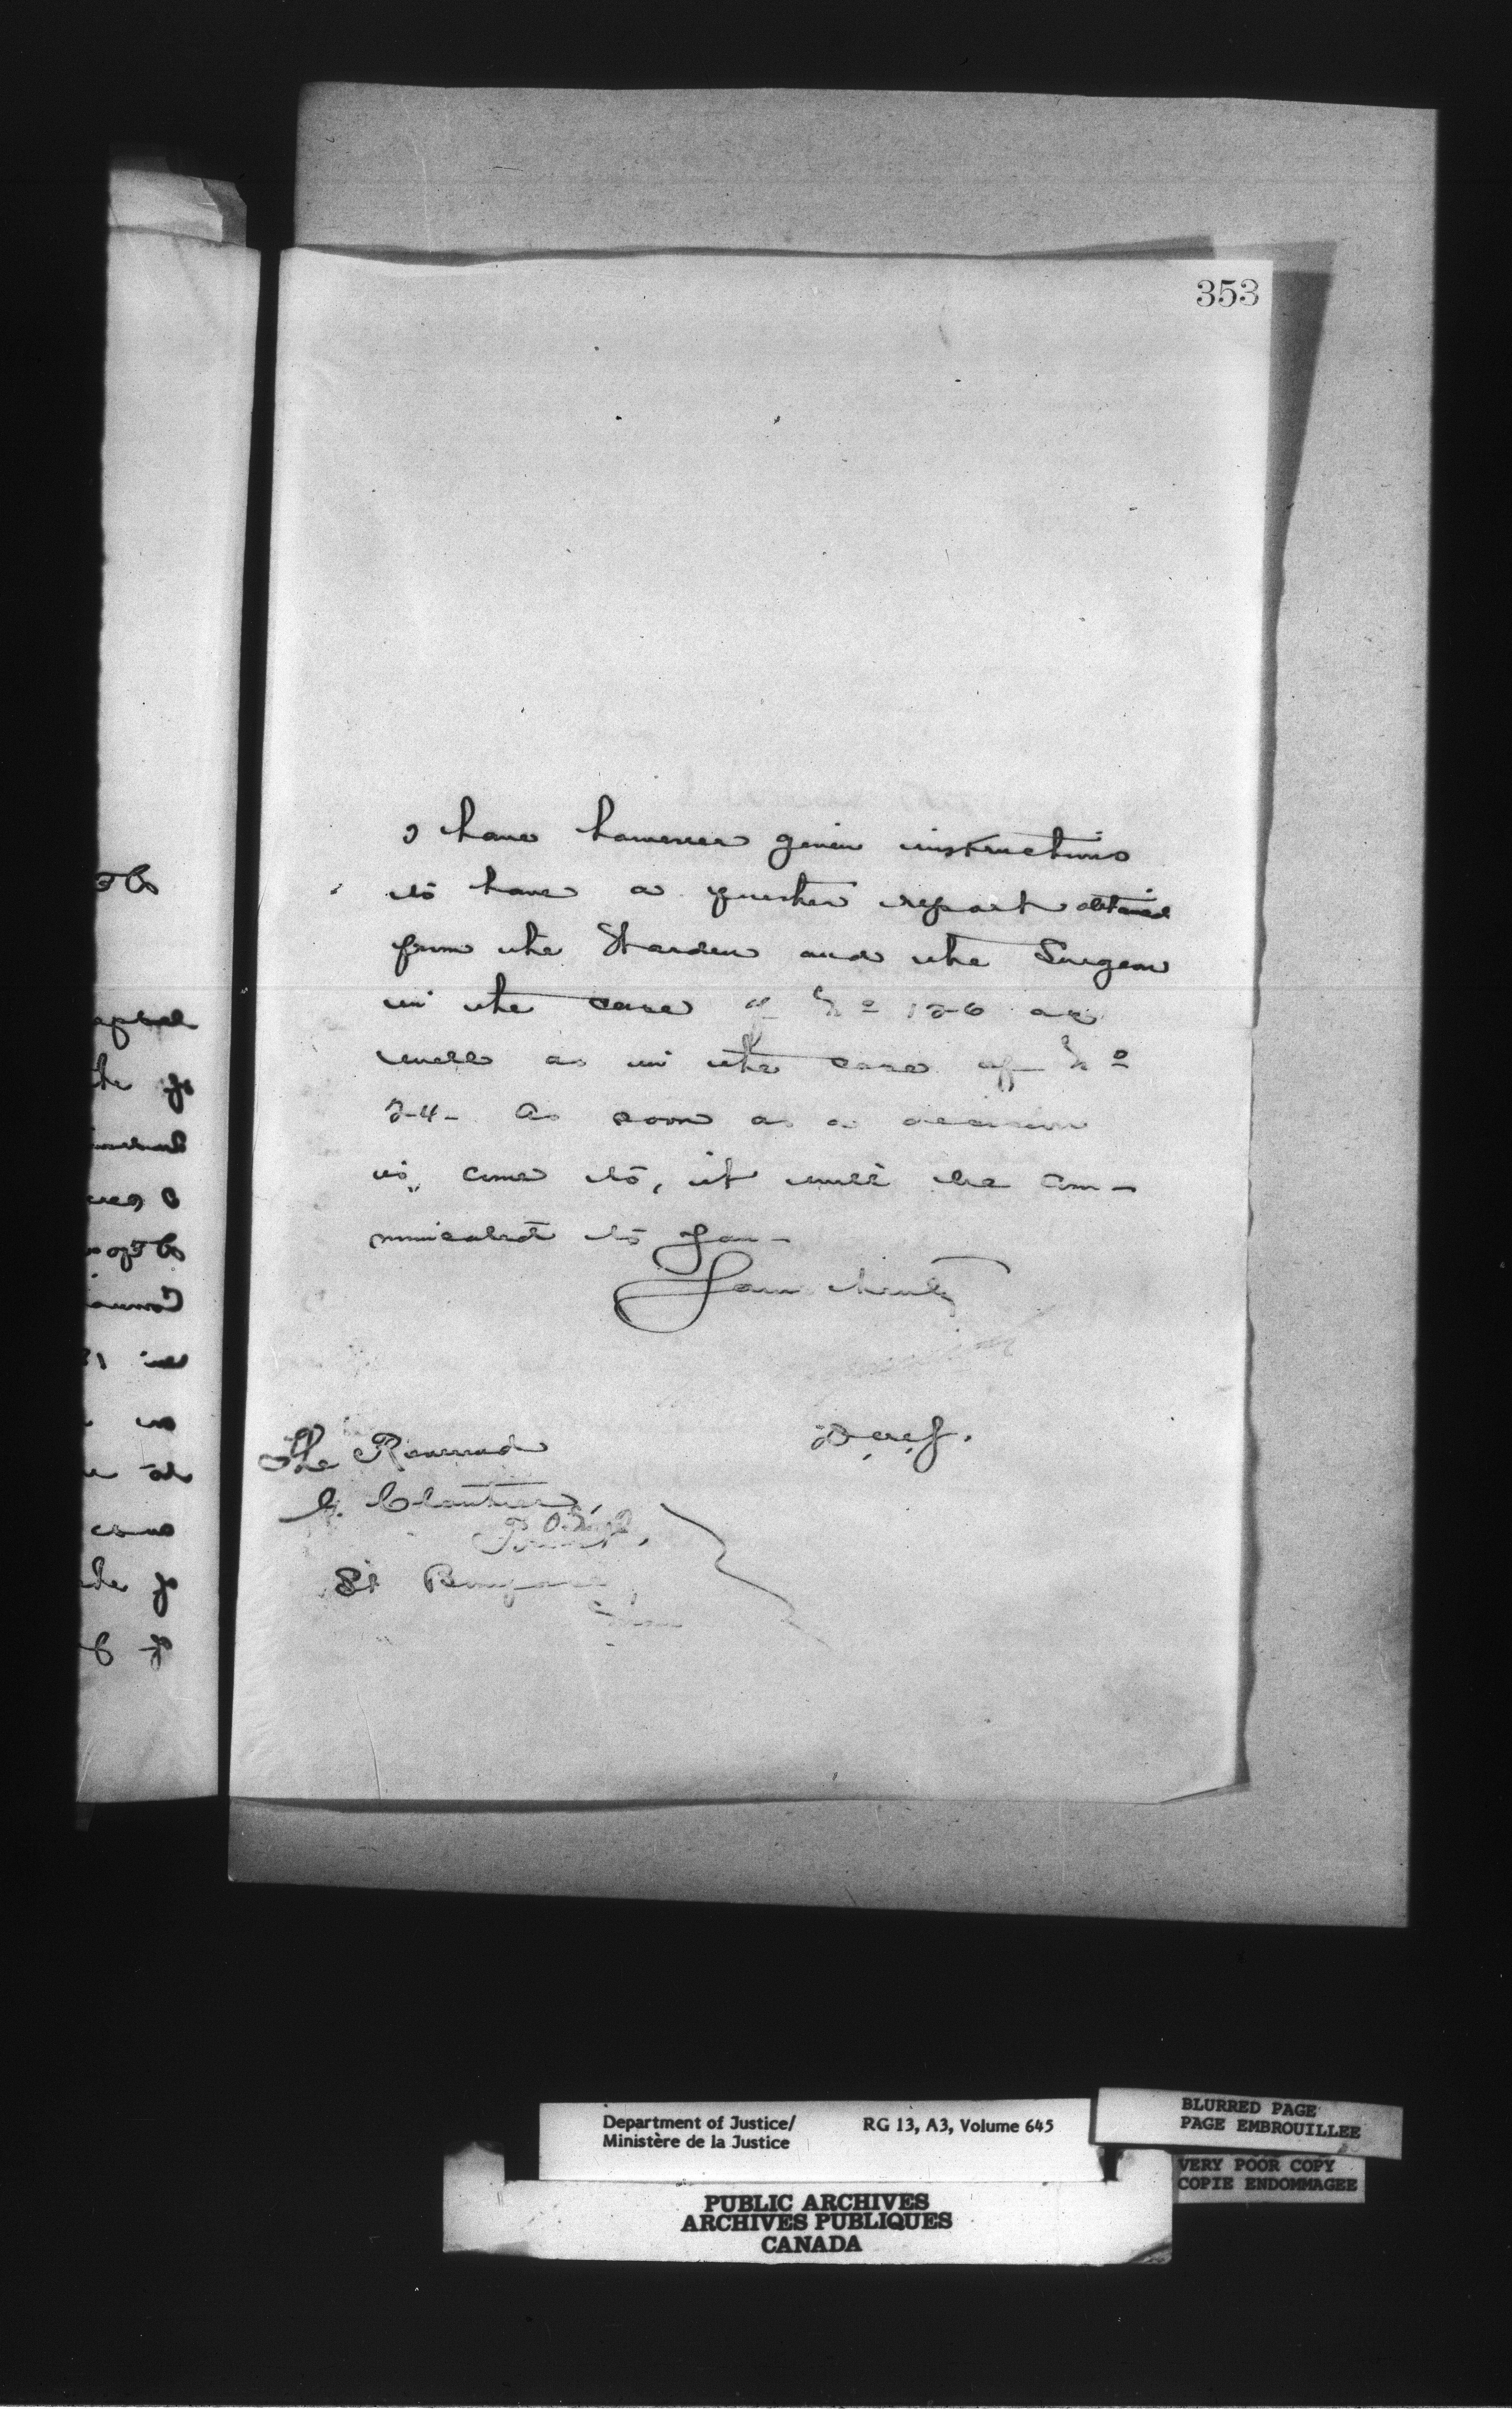 353
I have however given instructions
to have a further report obtained
from the Warden and the Surgeon
in the case of No 126 as
well as in the case of No
24- As soon as a decision
is, come to, it will be com-
municated to you-
Yours truly
The Reverend
G. Cloutier,
Priest,
St Boniface
Man
Department of Justice/
Ministère de la Justice
RG 13, A3, Volume 645
BLURRED PAGE
PAGE EMBROUILLEE
VERY POOR COPY
COPIE ENDOMMAGEE
PUBLIC ARCHIVES
ARCHIVES PUBLIQUES
CANADA